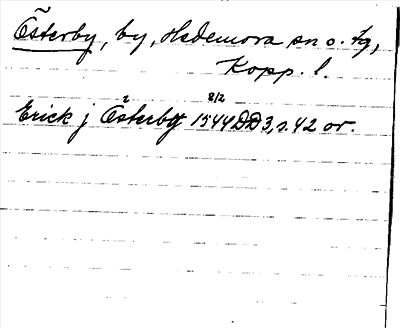 Österby, by, Hedemora sn o. tg,
Kopp. l.
Erick j Österby 8/2 1544 DD3, s. 42 or.